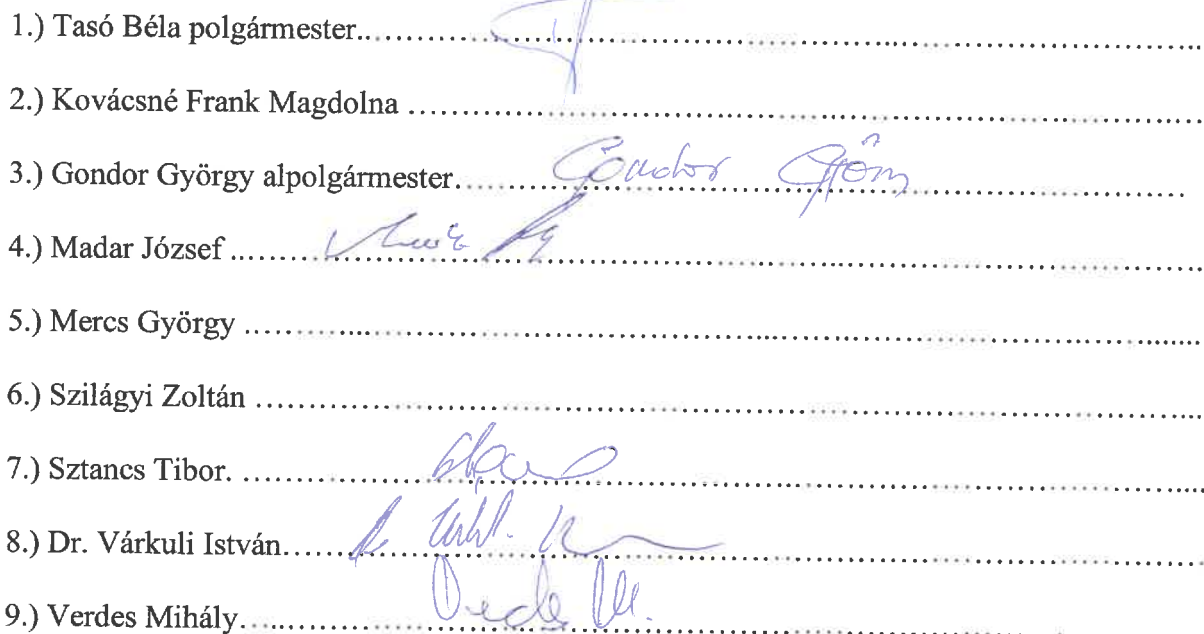 1.) Tasó Béla polgármester..........................................................................
2.) Kovácsné Frank Magdolna ..........................................................................
3.) Gondor György alpolgármester....... Gondor György
4.) Madar József ..........................................................................
5.) Mercs György ..........................................................................
6.) Szilágyi Zoltán ..........................................................................
7.) Sztancs Tibor. ..........................................................................
8.) Dr. Várkuli István..........................................................................
9.) Verdes Mihály..........................................................................